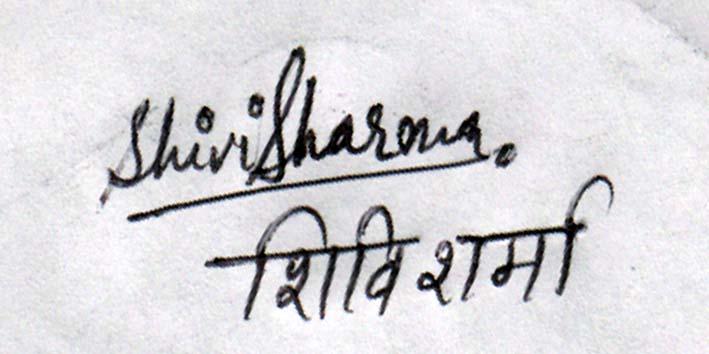 Shivi Sharma.
शिवि शर्मा